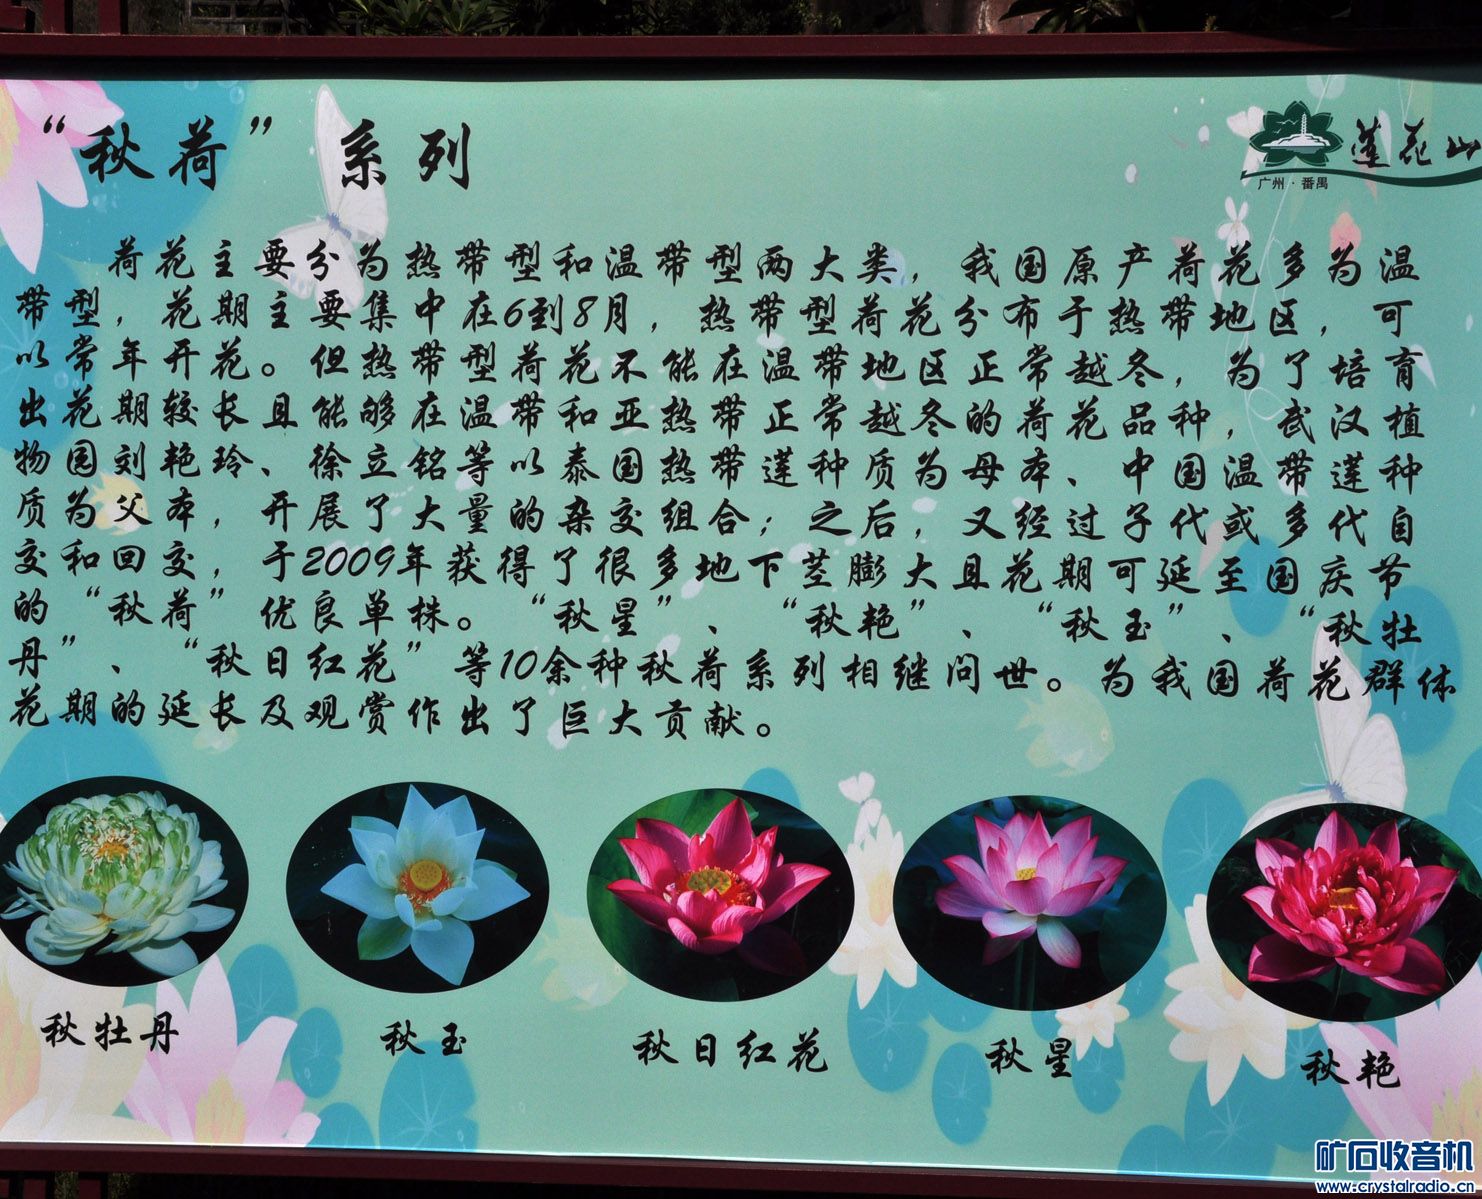 “秋荷”系列
莲花山
广州·番禺
荷花主要分为热带型和温带型两大类，我国原产荷花多为温
带型，花期主要集中在6到8月，热带型荷花分布于热带地区，可
以常年开花。但热带型荷花不能在温带地区正常越冬，为了培育
出花期较长且能够在温带和亚热带正常越冬的荷花品种，武汉植
物园刘艳玲、徐立铭等以泰国热带莲种质为母本、中国温带莲种
质为父本，开展了大量的杂交组合；之后，又经过子代或多代自
交和回交，于2009年获得了很多地下茎膨大且花期可延至国庆节
的“秋荷”优良单株。“秋星”、“秋艳”、“秋玉”、“秋牡
丹”、“秋日红花”等10余种秋荷系列相继问世。为我国荷花群体
花期的延长及观赏作出了巨大贡献。
秋牡丹
秋玉
秋日红花
秋星
秋艳
矿石收音机
www.crystalradio.cn